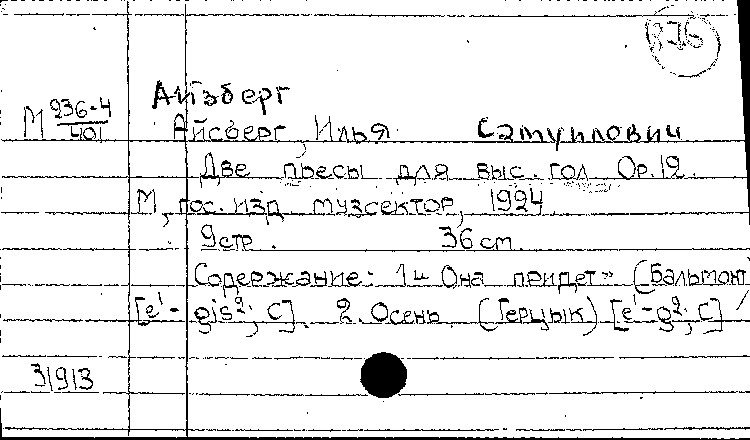 В76
Айзберг
М 236-4/401 Айсберг, Илья Самуилович
Две пьесы для выс. гол Ор.12.
М, гос. изд музсектор, 1924
9стр. 36 cm.
Содержание: 1 „Она придет" (Бальмонт
[e¹- gis²; C]. 2. Осень (Герцык) [e¹-g²; C] /
31913